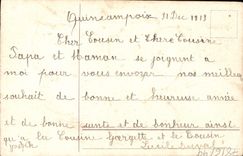 Quincampoix 31 Dec 1913
Cher Cousin et Chere Cousine
Papa et Maman se joignent a
moi pour vous envoyer nos meilleurs
souhait de bonne et heureuse année
et de bonne sante et de bonheur ainsi
qu'a la Cousine Georgette et le Cousin
Lucile